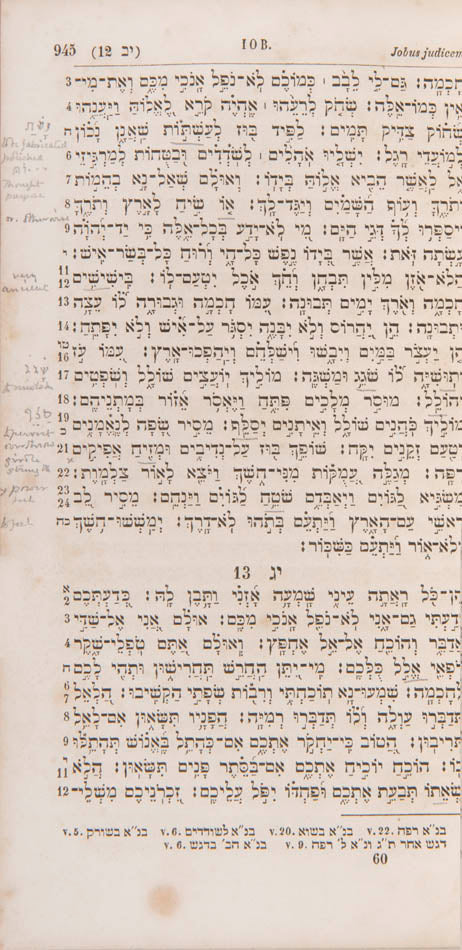 945 (יב 12) IOB. Jobus judicem
חָכְמָה׃ גַּם־לִי לֵבָב ׀ כְּמוֹכֶם לֹא־נֹפֵל אָנֹכִי מִכֶּם וְאֶת־מִי־ 3
אֵין כְּמוֹ־אֵלֶּה׃ שְׂחֹק לְרֵעֵהוּ ׀ אֶהְיֶה קֹרֵא לֶאֱלוֹהַּ וַיַּעֲנֵהוּ 4
שְׂחוֹק צַדִּיק תָּמִים׃ לַפִּיד בּוּז לְעַשְׁתּוּת שַׁאֲנָן נָכוֹן ה
לְמוֹעֲדֵי רָגֶל׃ יִשְׁלָיוּ אֹהָלִים ׀ לְשֹׁדְדִים וּבַטֻּחוֹת לְמַרְגִּיזֵי 6
אֵל לַאֲשֶׁר הֵבִיא אֱלוֹהַּ בְּיָדוֹ׃ וְאוּלָם שְׁאַל־נָא בְהֵמוֹת 7
וְתֹרֶךָּ וְעוֹף הַשָּׁמַיִם וְיַגֶּד־לָךְ׃ אוֹ שִׂיחַ לָאָרֶץ וְתֹרֶךָּ 8
וִיסַפְּרוּ לְךָ דְּגֵי הַיָּם׃ מִי לֹא־יָדַע בְּכָל־אֵלֶּה כִּי יַד־יְהוָה 9
עָשְׂתָה זֹּאת׃ אֲשֶׁר בְּיָדוֹ נֶפֶשׁ כָּל־חָי וְרוּחַ כָּל־בְּשַׂר־אִישׁ׃ י
הֲלֹא־אֹזֶן מִלִּין תִּבְחָן וְחֵךְ אֹכֶל יִטְעַם־לוֹ׃ בִּישִׁישִׁים 11 12
חָכְמָה וְאֹרֶךְ יָמִים תְּבוּנָה׃ עִמּוֹ חָכְמָה וּגְבוּרָה לוֹ עֵצָה 13
וּתְבוּנָה׃ הֵן יַהֲרוֹס וְלֹא יִבָּנֶה יִסְגֹּר עַל־אִישׁ וְלֹא יִפָּתֵחַ׃ 14
הֵן יַעְצֹר בַּמַּיִם וְיִבָשׁוּ וִישַׁלְּחֵם וְיַהַפְכוּ־אָרֶץ׃ עִמּוֹ עֹז טו 16
וְתוּשִׁיָּה לוֹ שֹׁגֵג וּמַשְׁגֶּה׃ מוֹלִיךְ יוֹעֲצִים שׁוֹלָל וְשֹׁפְטִים 17
יְהוֹלֵל׃ מוּסַר מְלָכִים פִּתֵּחַ וַיֶּאְסֹר אֵזוֹר בְּמָתְנֵיהֶם׃ 18
מוֹלִיךְ כֹּהֲנִים שׁוֹלָל וְאֵיתָנִים יְסַלֵּף׃ מֵסִיר שָׂפָה לְנֶאֱמָנִים 19 כ
וְטַעַם זְקֵנִים יִקָּח׃ שׁוֹפֵךְ בּוּז עַל־נְדִיבִים וּמְזִיחַ אֲפִיקִים 21
רִפָּה׃ מְגַלֶּה עֲמֻקוֹת מִנִּי־חֹשֶׁךְ וַיֹּצֵא לָאוֹר צַלְמָוֶת׃ 22
מַשְׂגִּיא לַגּוֹיִם וַיְאַבְּדֵם שֹׁטֵחַ לַגּוֹיִם וַיַּנְחֵם׃ מֵסִיר לֵב 23 24
רָאשֵׁי עַם־הָאָרֶץ וַיַּתְעֵם בְּתֹהוּ לֹא־דָרֶךְ׃ יְמַשְׁשׁוּ־חֹשֶׁךְ כה
וְלֹא־אוֹר וַיַּתְעֵם כַּשִּׁכּוֹר׃
יג 13
הֶן־כֹּל רָאֲתָה עֵינִי שָׁמְעָה אָזְנִי וַתָּבֶן לָהּ׃ כְּדַעְתְּכֶם א 2
יָדַעְתִּי גַם־אָנִי לֹא־נֹפֵל אָנֹכִי מִכֶּם׃ אוּלָם אֲנִי אֶל־שַׁדַּי 3
אֲדַבֵּר וְהוֹכֵחַ אֶל־אֵל אֶחְפָּץ׃ וְאוּלָם אַתֶּם טֹפְלֵי־שָׁקֶר 4
רֹפְאֵי אֱלִל כֻּלְּכֶם׃ מִי־יִתֵּן הַחֲרֵשׁ תַּחֲרִישׁוּן וּתְהִי לָכֶם ה
לְחָכְמָה׃ שִׁמְעוּ־נָא תוֹכַחְתִּי וְרִבוֹת שְׂפָתַי הַקְשִׁיבוּ׃ הַלְאֵל 6 7
תְּדַבְּרוּ עַוְלָה וְלוֹ תְּדַבְּרוּ רְמִיָּה׃ הֲפָנָיו תִּשָּׂאוּן אִם־לָאֵל 8
תְּרִיבוּן׃ הֲטוֹב כִּי־יַחְקֹר אֶתְכֶם אִם־כְּהָתֵל בֶּאֱנוֹשׁ תְּהָתֵלּוּ 9
בוֹ׃ הוֹכֵחַ יוֹכִיחַ אֶתְכֶם אִם־בַּסֵּתֶר פָּנִים תִּשָּׂאוּן׃ הֲלֹא י 11
שְׂאֵתוֹ תְּבַעֵת אֶתְכֶם וּפַחְדּוֹ יִפֹּל עֲלֵיכֶם׃ זִכְרֹנֵיכֶם מִשְׁלֵי־ 12
v. 5. בנ״א בשורק v. 6. בנ״א לשודדים v. 20. בנ״א בשוא v. 22. בנ״א רפה
v. 6. בנ״א הב׳ בדגש v. 9. דגש אחר ת״ג ונ״א ל׳ רפה
60
very
ancient